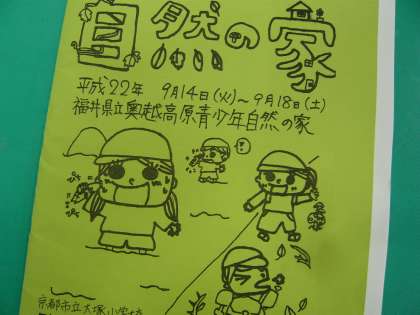 自然の家
平成22年 9月14日(火)～9月18日(土)
福井県立奥越高原青少年自然の家
京都市立大塚小学校